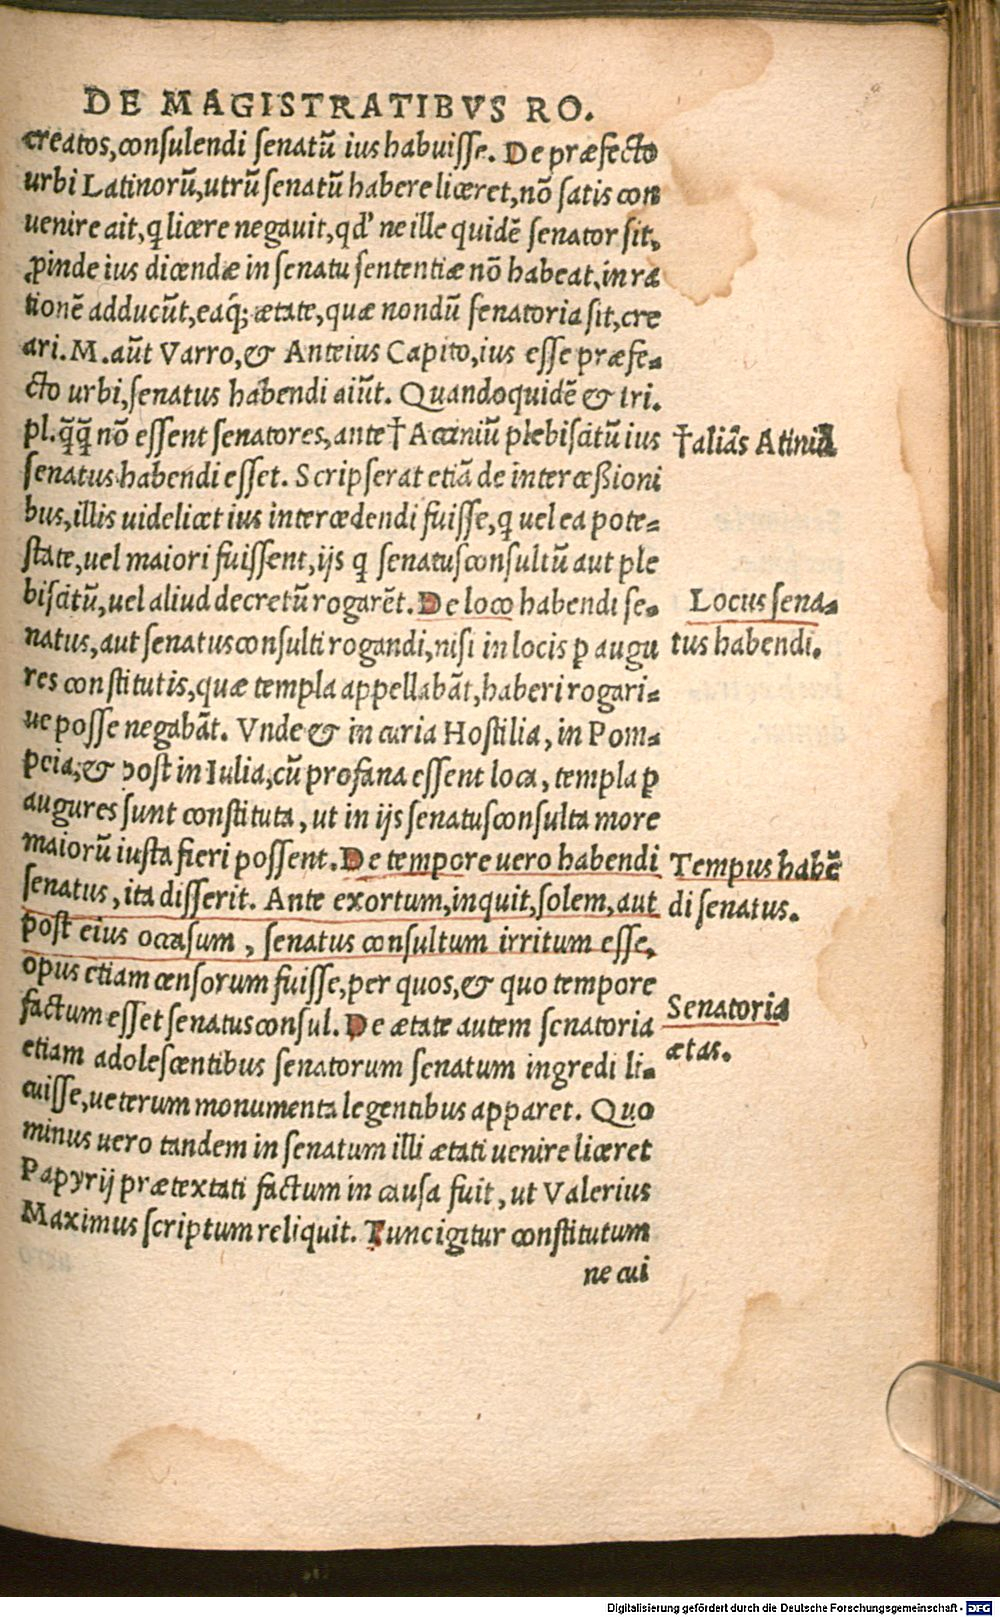 DE MAGISTRATIBVS RO.
creatos, consulendi senatū ius habuisse. De præfecto
urbi Latinorū, utrū senatū habere liceret, nō satis con
uenire ait, q licere negauit, qd' ne ille quidē senator sit,
ꝓinde ius dicendæ in senatu sententiæ nō habeat, in ra
tionē adducūt, eaq́; ætate, quæ nondū senatoria sit, cre
ari. M. aūt Varro, & Anteius Capito, ius esse præfe-
cto urbi, senatus habendi aiūt. Quandoquidē & tri.
pl. q̄q̄ nō essent senatores, ante † Acciniū plebiscitū ius
† aliās Atiniū
senatus habendi esset. Scripserat etiā de intercessioni
bus, illis uidelicet ius intercedendi fuisse, q uel ea pote-
state, uel maiori fuissent, ijs q senatusconsultū aut ple
biscitū, uel aliud decretū rogarēt. De loco habendi se-
Locus sena-
natus, aut senatusconsulti rogandi, nisi in locis ꝑ augu
tus habendi.
res constitutis, quæ templa appellabāt, haberi rogari-
ue posse negabāt. Vnde & in curia Hostilia, in Pom-
peia, & post in Iulia, cū profana essent loca, templa ꝑ
augures sunt constituta, ut in ijs senatusconsulta more
maiorū iusta fieri possent. De tempore uero habendi
Tempus habē
senatus, ita disserit. Ante exortum, inquit, solem, aut
di senatus.
post eius occasum, senatus consultum irritum esse,
opus etiam censorum fuisse, per quos, & quo tempore
factum esset senatusconsul. De ætate autem senatoria
Senatoria
etiam adolescentibus senatorum senatum ingredi li-
ætas.
cuisse, ueterum monumenta legentibus apparet. Quo
minus uero tandem in senatum illi ætati uenire liceret
Papyrij prætextati factum in causa fuit, ut Valerius
Maximus scriptum reliquit. Tunc igitur constitutum
ne cui
Digitalisierung gefördert durch die Deutsche Forschungsgemeinschaft - DFG